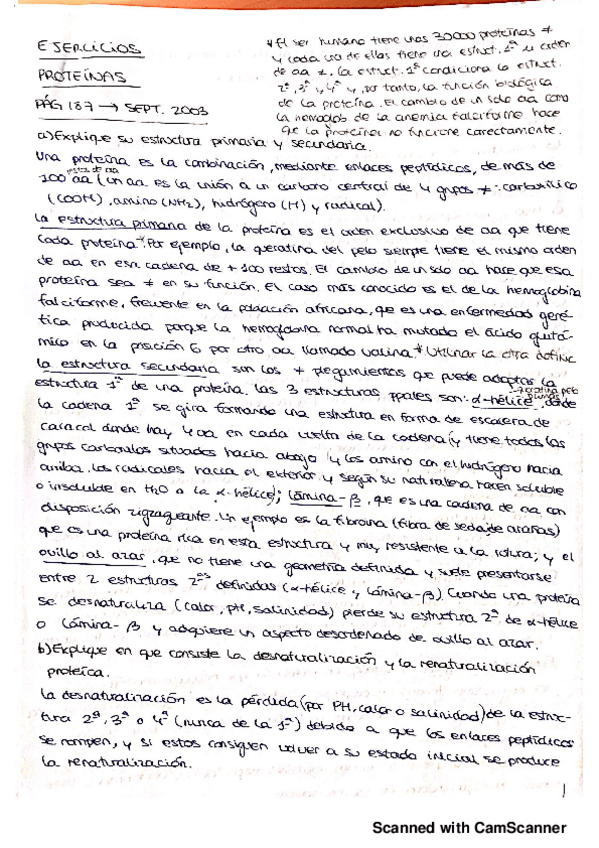 EJERCICIOS
PROTEÍNAS
PÁG 187 → SEPT. 2003
* El ser humano tiene unas 30000 proteínas ≠
y cada una de ellas tiene una estruct. 1ª u orden
de aa ≠. La estruct. 1ª condiciona la estruct.
2ª, 3ª y 4ª y, por tanto, la función biológica
de la proteína. El cambio de un solo aa como
la hemoglob de la anemia falciforme hace
que la proteína no funcione correctamente.
a) Explique su estructura primaria y secundaria.
Una proteína es la combinación, mediante enlaces peptídicos, de más de
100 aa (un aa es la unión a un carbono central de 4 grupos ≠: carboxílico
(COOH), amino (NH2), hidrógeno (H) y radical).
La estructura primaria de la proteína es el orden exclusivo de aa que tiene
cada proteína.* Por ejemplo, la queratina del pelo siempre tiene el mismo orden
de aa en esa cadena de + 100 restos. El cambio de un solo aa hace que esa
proteína sea ≠ en su función. El caso más conocido es el de la hemoglobina
falciforme, frecuente en la población africana, que es una enfermedad gené-
tica producida porque la hemoglobina normal ha mutado el ácido glutá-
mico en la posición 6 por otro aa llamado valina.* Utilizar la otra definic
La estructura secundaria son los + plegamientos que puede adoptar la
estructura 1ª de una proteína. Las 3 estructuras ppales son: α-hélice, donde
la cadena 1ª se gira formando una estructura en forma de escalera de
caracol donde hay 4 aa en cada vuelta de la cadena (y tiene todos los
grupos carbonilos situados hacia abajo y los amino con el hidrógeno hacia
arriba. Los radicales hacia el exterior y según su naturaleza hacen soluble
o insoluble en H2O a la α-hélice); lámina-β, que es una cadena de aa con
disposición zigzagueante. Un ejemplo es la fibroína (fibra de seda de arañas)
que es una proteína rica en esta estructura y muy resistente a la rotura; y el
ovillo al azar, que no tiene una geometría definida y suele presentarse
entre 2 estructuras 2ªs definidas (α-hélice y lámina-β). Cuando una proteína
se desnaturaliza (calor, pH, salinidad) pierde su estructura 2ª de α-hélice
o lámina-β y adquiere un aspecto desordenado de ovillo al azar.
b) Explique en que consiste la desnaturalización y la renaturalización
proteíca.
La desnaturalización es la pérdida (por PH, calor o salinidad) de la estruc-
tura 2ª, 3ª o 4ª (nunca de la 1ª) debido a que los enlaces peptídicos
se rompen, y si estos consiguen volver a su estado inicial se produce
la renaturalización.
1
Scanned with CamScanner